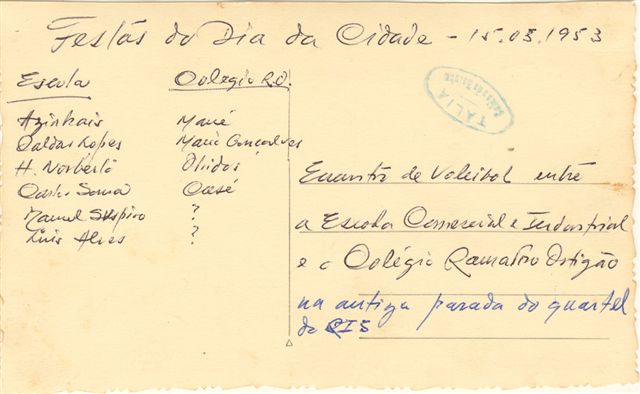 Festas do Dia da Cidade - 15.05.1953
Escola
Azinhais
Caldas Lopes
H. Norberto
Carlos Sousa
Manuel
Luis Alves
Colégio R.O.
Mané
Mario Gonçalves
Óbidos
Casé
?
?
TÁLIA
Encontro de Voleibol entre
a Escola Comercial e Industrial
e o Colégio Ramalho Ortigão
na antiga parada do quartel
do